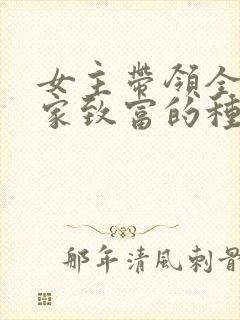 女主帶領全
家致富的種
那年清風刺骨